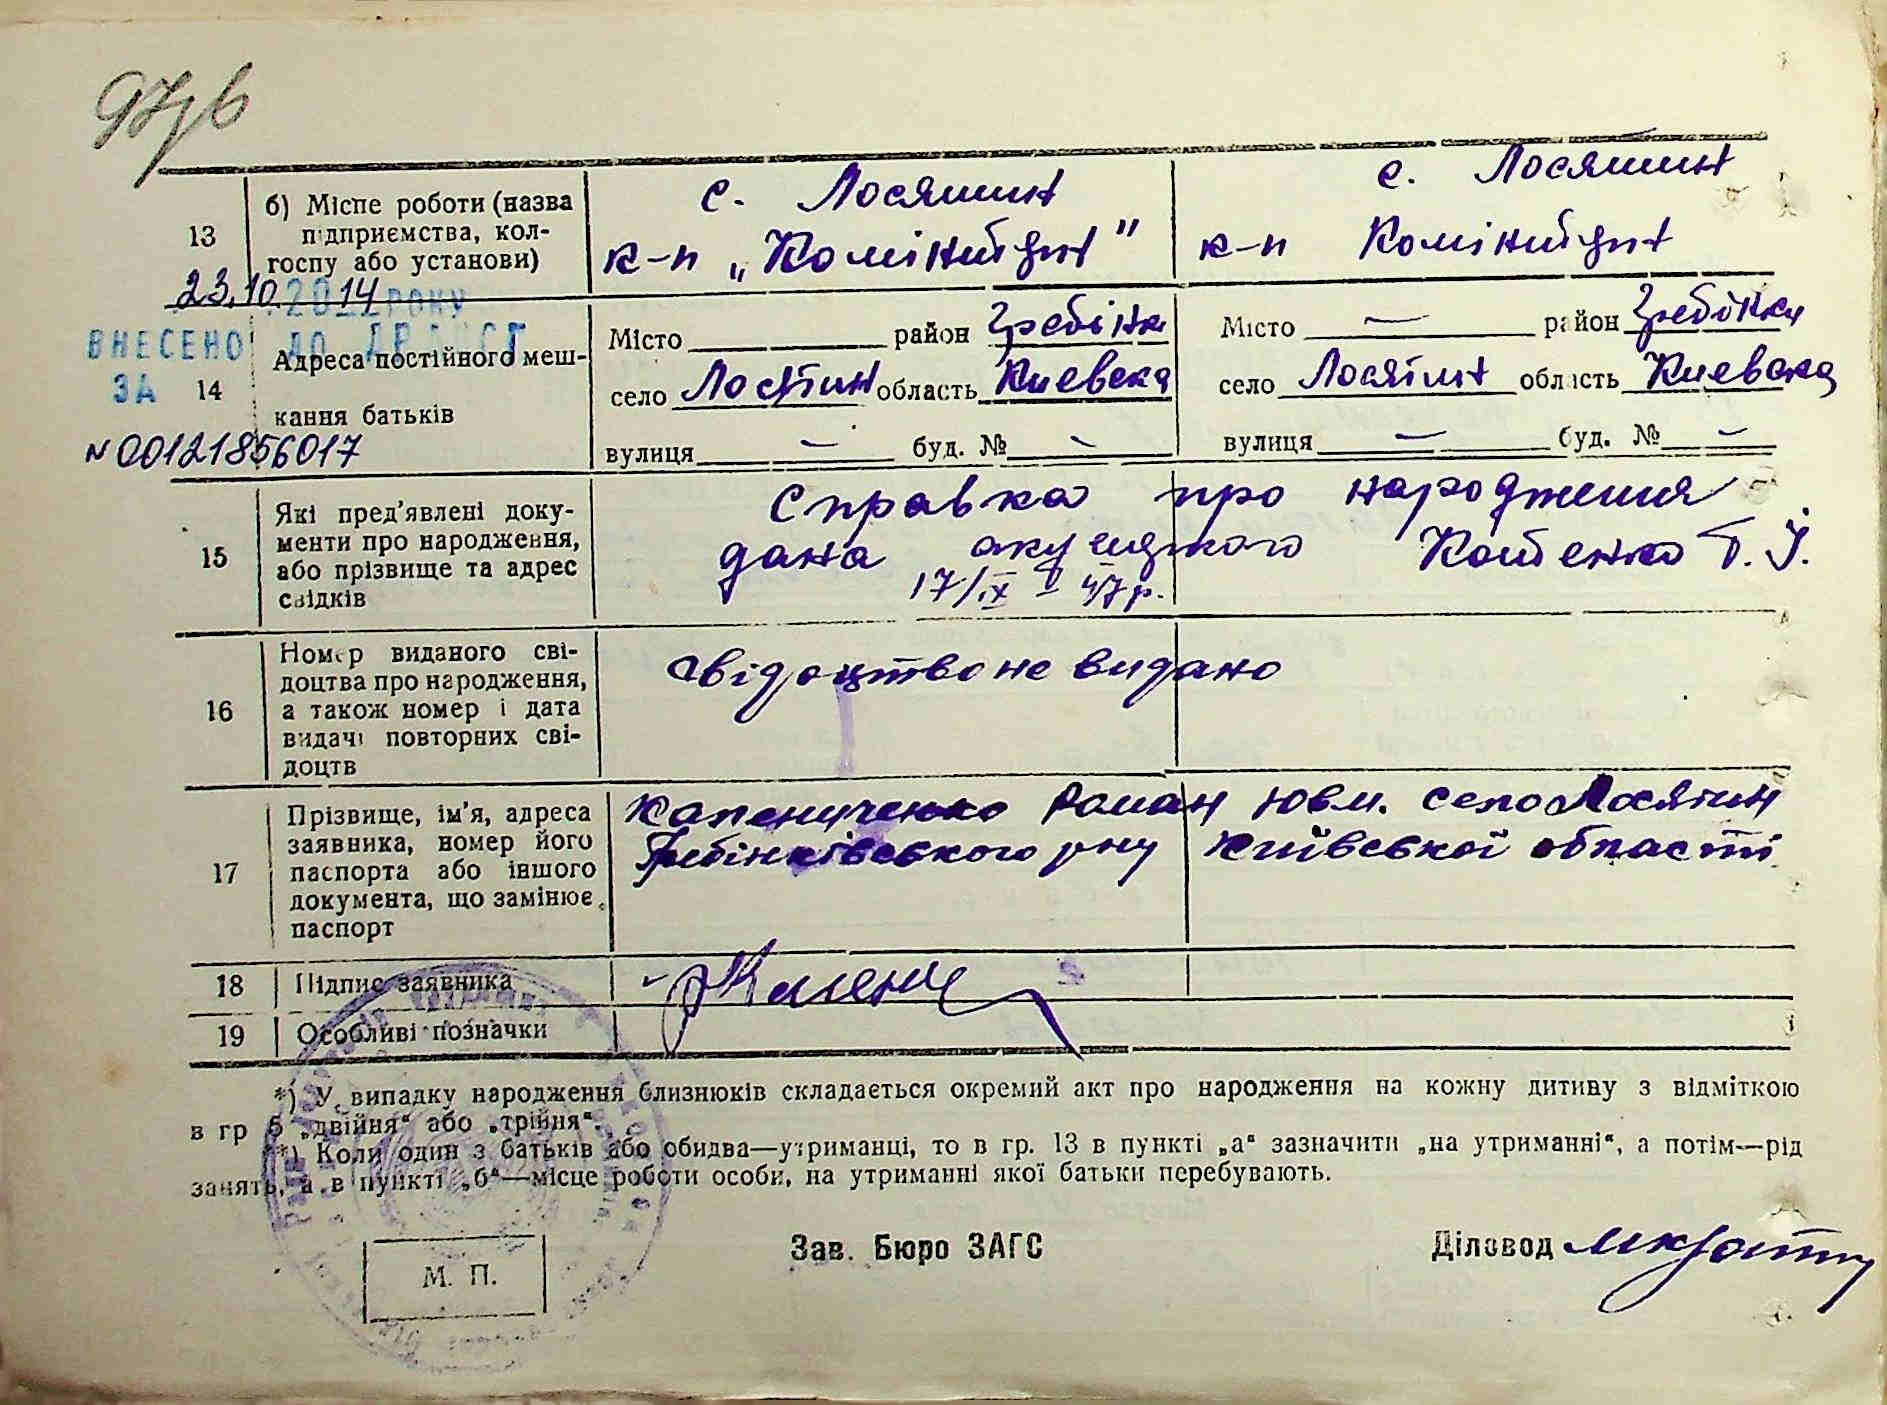 97зв
с. Лосятин с. Лосятин
13 б) Місце роботи (назва підприємства, колгоспу або установи) к-п „Комінтерн" к-п Комінтерн
23.10 2014 РОКУ
ВНЕСЕНО ДО ДРАЦСГ
ЗА
N 00121856017
14 Адреса постійного мешкання батьків
Місто — район Гребінк Місто — район Гребінки
село Лосятин область Киевска село Лосятин область Киевска
вулиця — буд. № — вулиця — буд. № —
15 Які пред'явлені документи про народження, або прізвище та адрес свідків
Справка про народження
дана акушеркою Котенко Т. І.
17/ІХ 47 р.
16 Номер виданого свідоцтва про народження, а також номер і дата видачі повторних свідоцтв
Свідоцтво не видано
17 Прізвище, ім'я, адреса заявника, номер його паспорта або іншого документа, що замінює паспорт
Роман Юхм. село Лосятин
Гребінківського р-ну Київської області
18 Підпис заявника
19 Особливі позначки
*) У випадку народження близнюків складається окремий акт про народження на кожну дитину з відміткою
в гр 5 „двійня“ або „трійня“.
**) Коли один з батьків або обидва—утриманці, то в гр. 13 в пункті „а“ зазначити „на утриманні“, а потім—рід
занять, а в пункті „б“—місце роботи особи, на утриманні якої батьки перебувають.
Зав. Бюро ЗАГС Діловод
М. П.